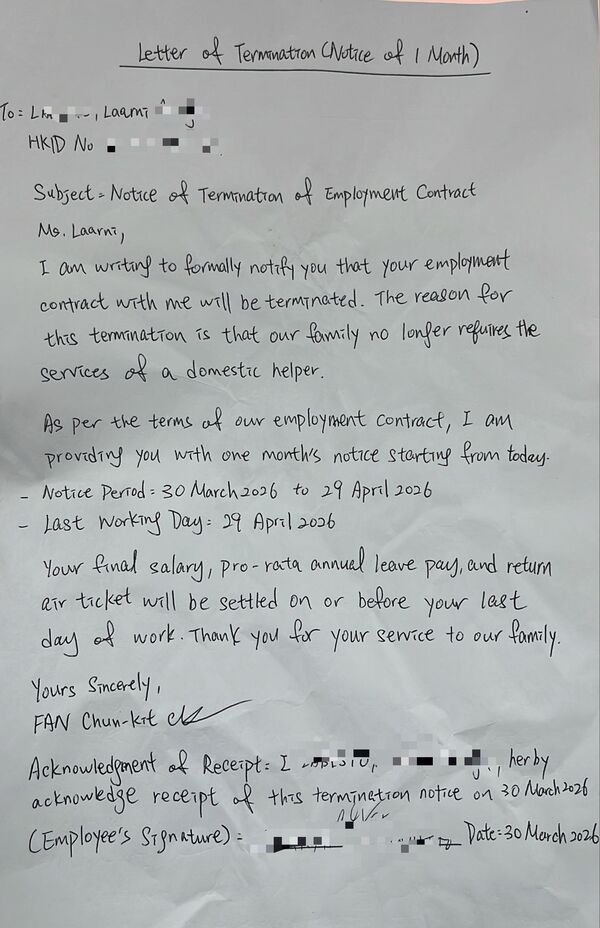 Letter of Termination (Notice of 1 Month)
To: Laarni
HKID No
Subject: Notice of Termination of Employment Contract
Ms. Laarni,
I am writing to formally notify you that your employment
contract with me will be terminated. The reason for
this termination is that our family no longer requires the
services of a domestic helper.
As per the terms of our employment contract, I am
providing you with one month's notice starting from today.
- Notice Period: 30 March 2026 to 29 April 2026
- Last Working Day: 29 April 2026
Your final salary, pro-rata annual leave pay, and return
air ticket will be settled on or before your last
day of work. Thank you for your service to our family.
Yours Sincerely,
FAN Chun-kit
Acknowledgment of Receipt: I , herby
acknowledge receipt of this termination notice on 30 March 2026
(Employee's Signature): Date: 30 March 2026